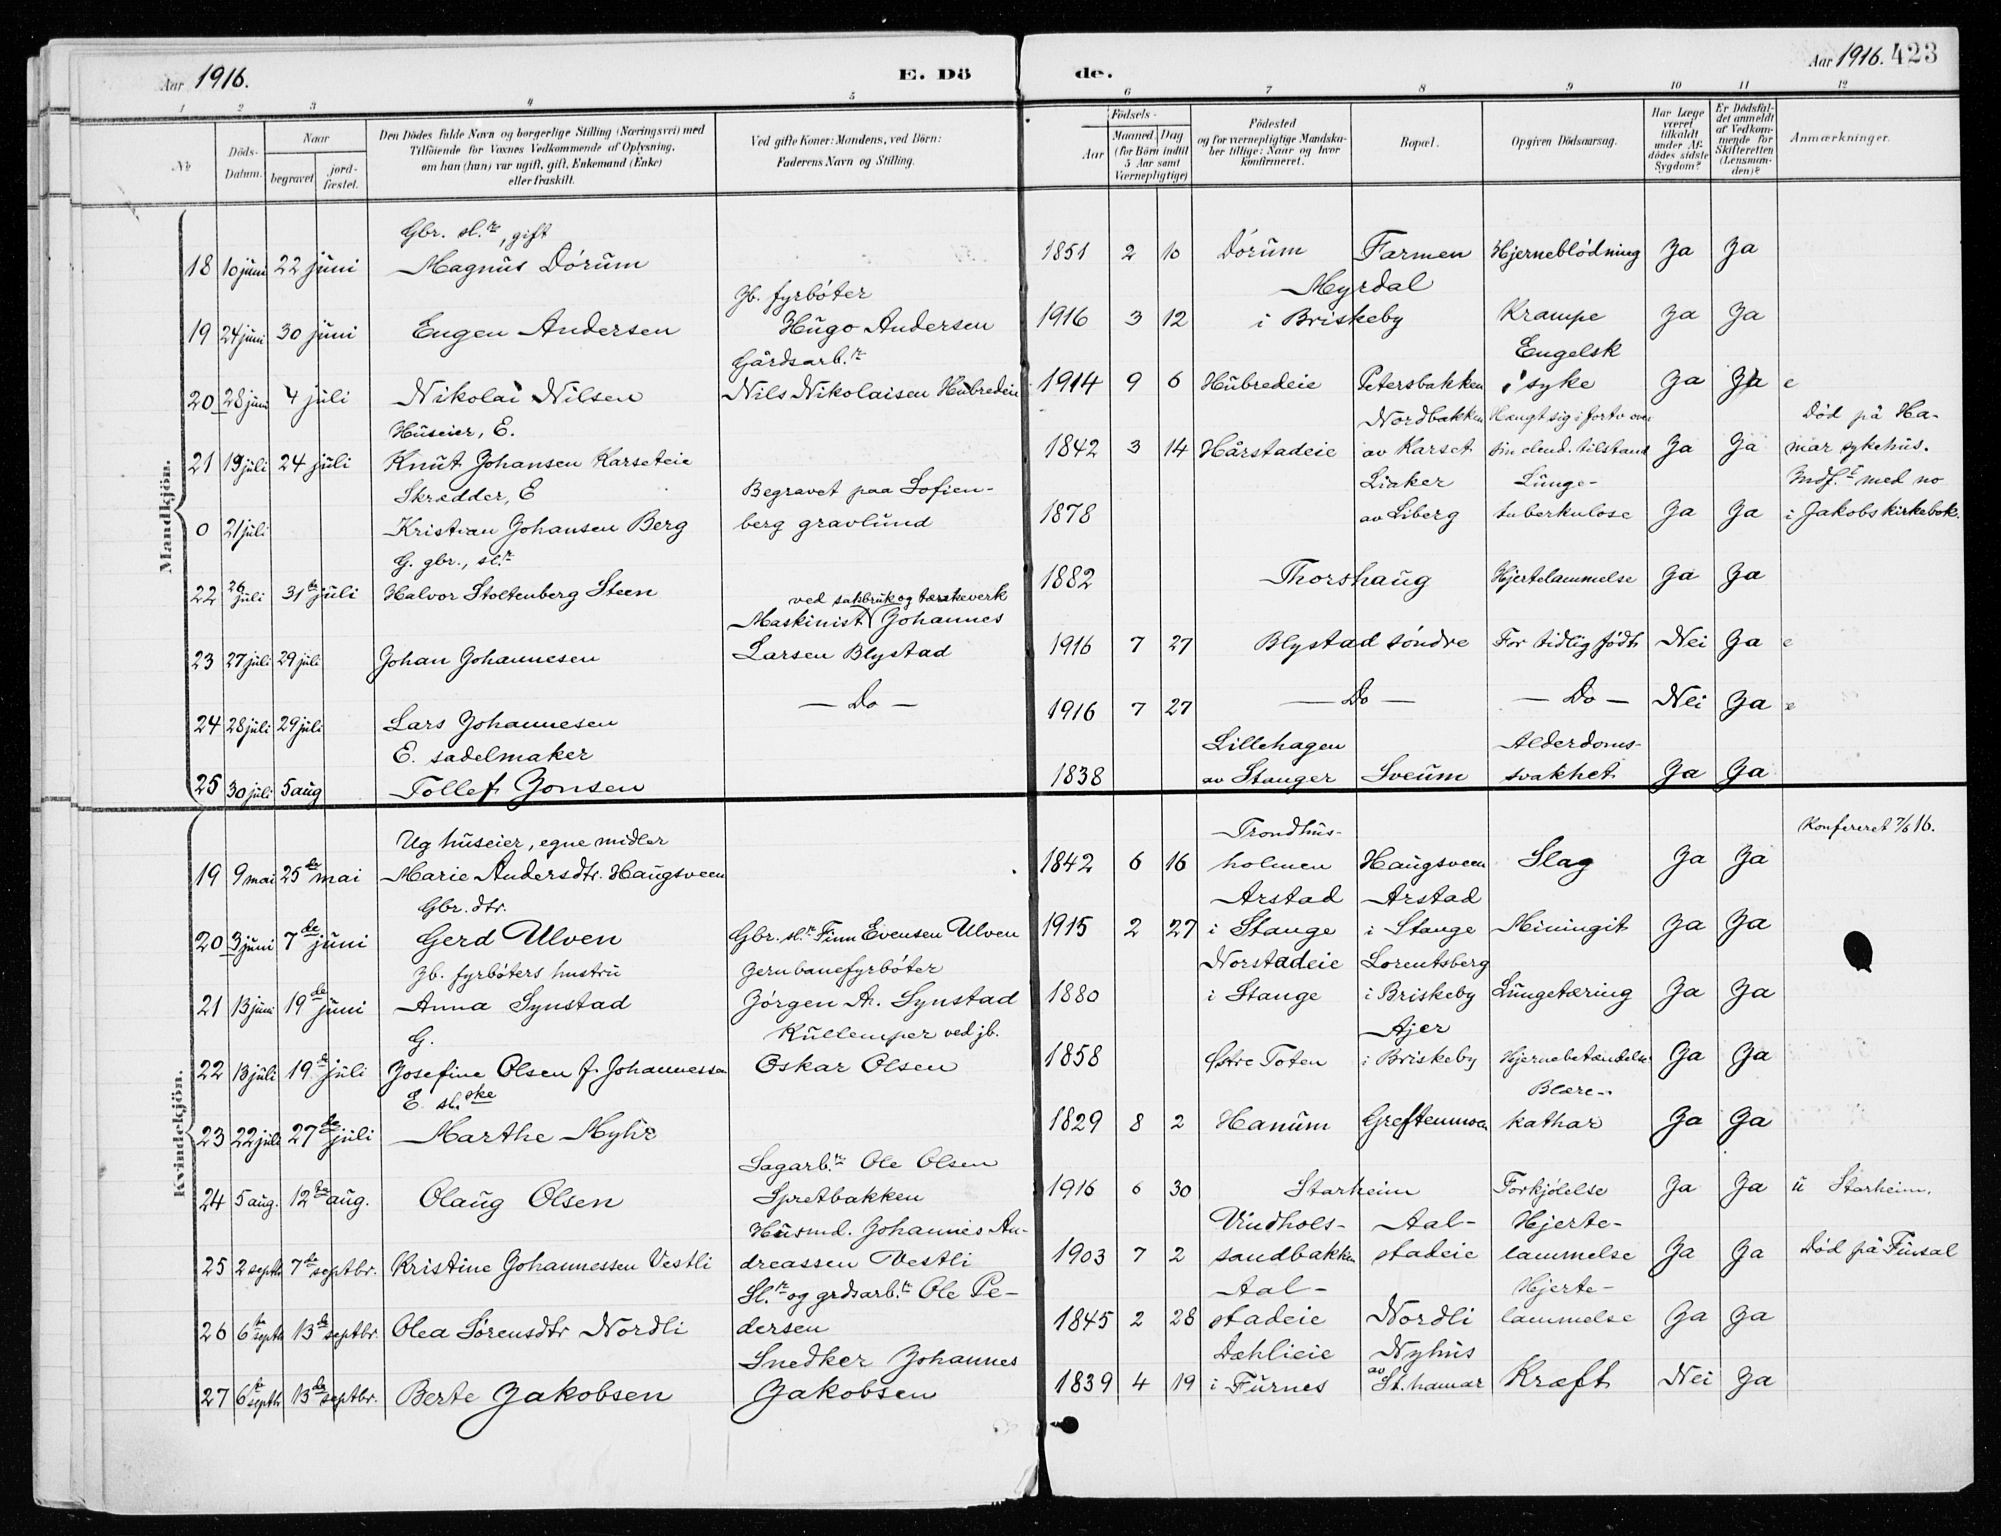 Aar 1916.
E. Dö de.
Aar 1916. 423
1 2 3 4 5 6 7 8 9 10 11 12
No
Döds-Datum.
Naar
begravet
jord-fæstet.
Den Dödes fulde Navn og borgerlige Stilling (Næringsvei) med
Tilföiende for Voxnes Vedkommende af Oplysning,
om han (hun) var ugift, gift, Enkemand (Enke)
eller fraskilt.
Ved gifte Koner: Mandens, ved Börn:
Faderens Navn og Stilling.
Födsels-
Aar
Maaned Dag
(for Börn indtil
5 Aar samt
Værnepligtige)
Födested
og for værnepligtige Mandska-
ber tillige: Naar og hvor
konfirmeret.
Bopæl.
Opgiven Dödsaarsag.
Har Læge
været
tilkaldt
under Af-
dödes sidste
Sygdom?
Er Dödsfal-
det anmeldt
af Vedkom-
mende for
Skifteretten
(Lensman-
den)?
Anmærkninger.
Mandkjön.
Gbr. sl.r, gift
18 10 juni 22 juni Magnus Dórum 1851 2 10 Dórum Farmen Hjerneblódning Ja Ja
Jb. fyrbóter Myrdal
19 24 juni 30 juni Eugen Andersen Hugo Andersen 1916 3 12 i Briskeby Krampe Ja Ja
Gårdsarb.r Engelsk
20 28 juni 4 juli Nikolai Nilsen Nils Nikolaisen Hubredeie 1914 9 6 Hubredeie Petersbakken syke Ja Ja e
Huseier, E. Nordbakken Hængt sig i fortv. over Død på Ha-
21 19 juli 24 juli Knut Johansen Karseteie 1842 3 14 Hårstadeie av Karset sin elend. tilstand Ja Ja mar sykehus.
Skrædder, E Begravet paa Sofien- Liaker Lunge- Mdf. med no
0 21 juli Kristian Johansen Berg berg gravlund 1878 av Liberg tuberkulose Ja Ja i Jakobs kirkebok.
G. gbr., sl.r
22 26 juli 31te juli Halvor Stoltenberg Steen 1882 Thorshaug Hjertelammelse Ja Ja
ved sakbruk og tærskeverk
Maskinist Johannes
23 27 juli 29 juli Johan Johannesen Larsen Blystad 1916 7 27 Blystad sóndre For tidlig født Nei Ja e
24 28 juli 29 juli Lars Johannesen — Do — 1916 7 27 — Do — — Do — Nei Ja e
E. sadelmaker Lillehagen Alderdoms-
25 30 juli 5 aug Tollef Jonsen 1838 av Stanger Sveum svakhet Ja Ja
Kvindekjön.
Ug huseier, egne midler Trondhus- Konfereret 7/6 16.
19 9 mai 25de mai Marie Andersdtr. Haugsveen 1842 6 16 holmen Haugsveen Slag Ja Ja
Gbr. dtr. Arstad Arstad
20 3 juni 7de juni Gerd Ulven Gbr. sl.r Finn Evensen Ulven 1915 2 27 i Stange i Stange Miningit Ja Ja
Jb. fyrbóters hustru Jernbanefyrbóter Norstadeie Lorentsberg
21 13 juni 19de juni Anna Synstad Jórgen A. Synstad 1880 i Stange i Briskeby Lungetæring Ja Ja
G. Kullemper ved jb. Ajer
22 13 juli 19de juli Josefine Olsen f. Johannessen Oskar Olsen 1858 Østre Toten i Briskeby Hjernebetændelse Ja Ja
E. sl.ske Blære-
23 22 juli 27de juli Marthe Myhr 1829 8 2 Hanum Greftenmoen kathar Ja Ja
Sagarb.r Ole Olsen
24 5 aug. 12te aug. Olaug Olsen Spretbakken 1916 6 30 Starheim Forkjólelse Ja Ja u Starheim.
Husmd. Johannes An- Vindhols- Aal- Hjerte-
25 2 septbr 7de septbr. Kristine Johannessen Vestli dreassen Vestli 1903 7 2 sandbakken stadeie lammelse Ja Ja Død på Finsal
Sl.r og grdsarb.r Ole Pe- Aal- Hjerte-
26 6te septbr 13de septbr. Olea Sórensdtr Nordli dersen 1845 2 28 stadeie Nordli lammelse Ja Ja
Snedker Johannes Dæhlieie Nyhus
27 6te septbr 13de septbr. Berte Jakobsen Jakobsen 1839 4 19 i Furnes av St. hamar Kræft Nei Ja